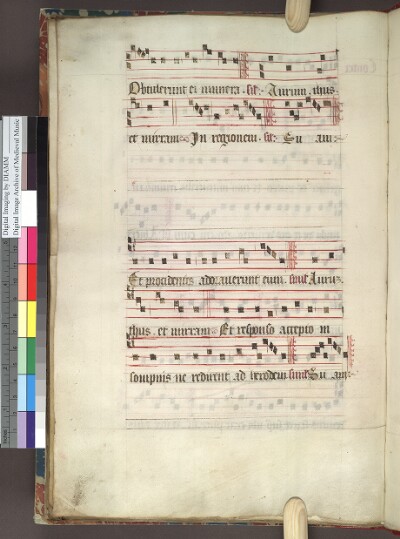 Digital Imaging by DIAMM
Digital Image Archive of Medieval Music
Obtulerunt ei munera. Aurum. thus.
et mirram. In regionem. Su am.
Et procidentes adorauerunt eum. Auru.
thus. et mirram. Et responso accepto in
sompnis ne redirent ad herodem Su am.